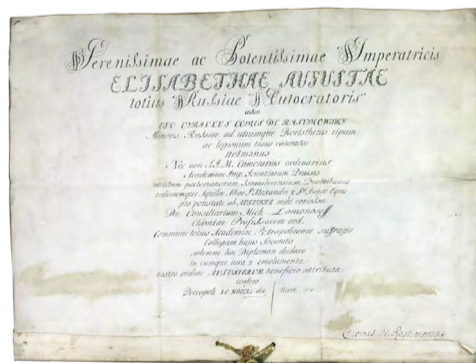 Serenissimae ac Potentissimae Imperatricis
ELISABETHAE AUGUSTAE
totius Russiae Autocratoris
EGO CYRILLUS COMES DE RASUMOWSKY
Minoris Russiae ad utramque Boristhenis ripam
ac legionum
Hetmanus
Nec non S. I. M. Camerarius ordinarius
Academiae Imp. Scientiarum Praeses
militum praetorianorum Ismailovianorum
pro potestate ab AUGUSTA mihi concessa
Dn. Consiliarium Mich. Lomonosoff
Chimiae Professorem ord.
Communi totius Academiae Petropolitanae suffragio
Collegam hujus Societatis
solemni hoc Diplomate declaro
in eumque iura et emolumenta
vestro ordini AUGUSTARUM beneficio attributa
confero
Petropoli
Comes de Rasumowsky